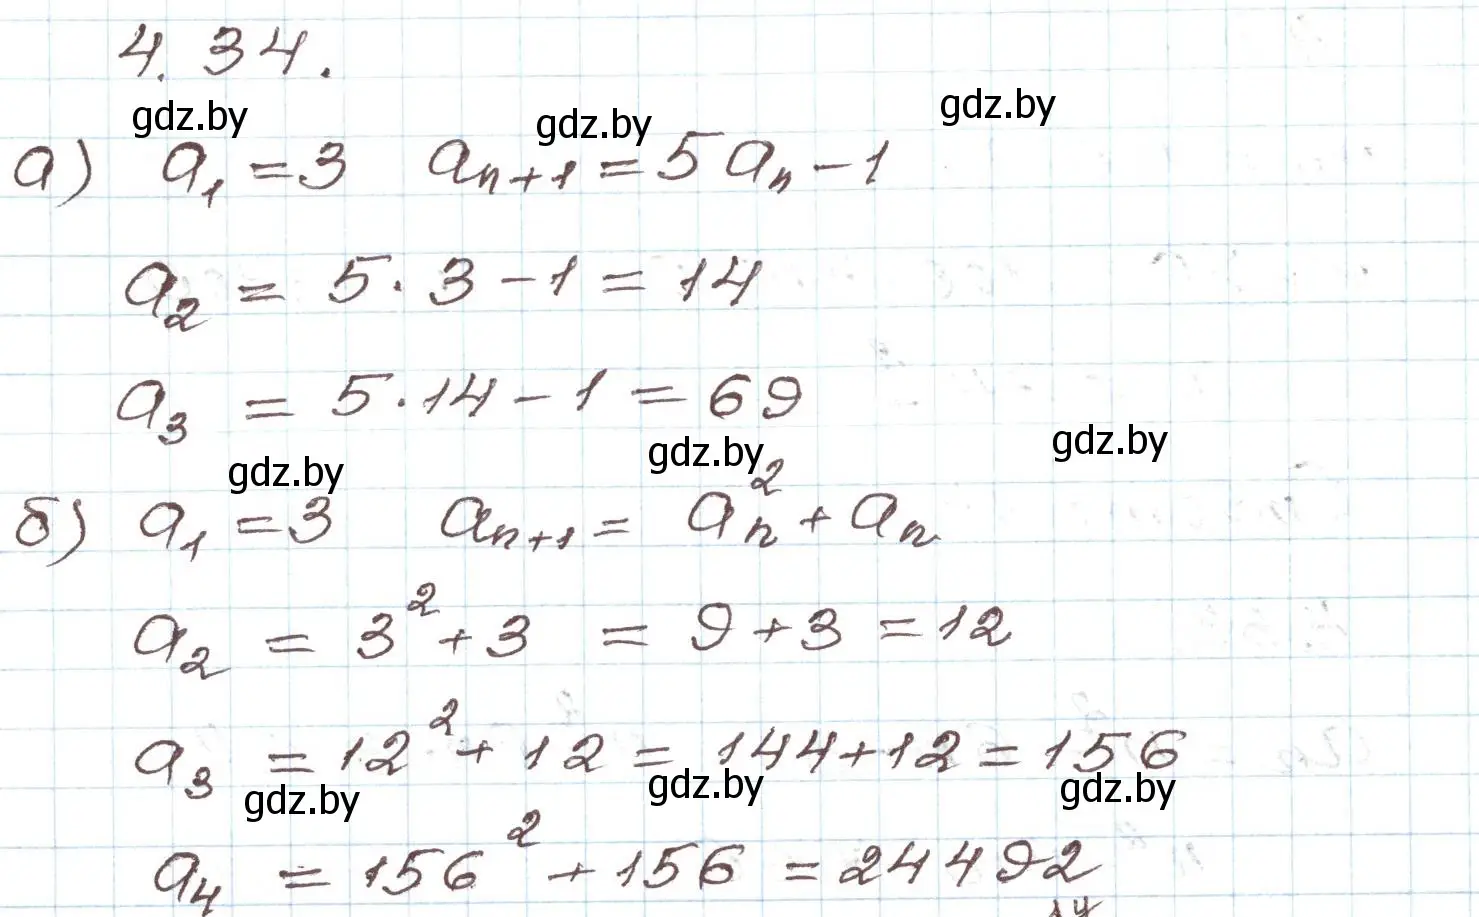 4.34.
gdz.by gdz.by gdz.by
а) a₁ = 3 aₙ₊₁ = 5aₙ − 1
a₂ = 5·3 − 1 = 14
a₃ = 5·14 − 1 = 69
gdz.by gdz.by gdz.by
б) a₁ = 3 aₙ₊₁ = aₙ² + aₙ
a₂ = 3² + 3 = 9 + 3 = 12
a₃ = 12² + 12 = 144 + 12 = 156
gdz.by gdz.by gdz.by
a₄ = 156² + 156 = 24492